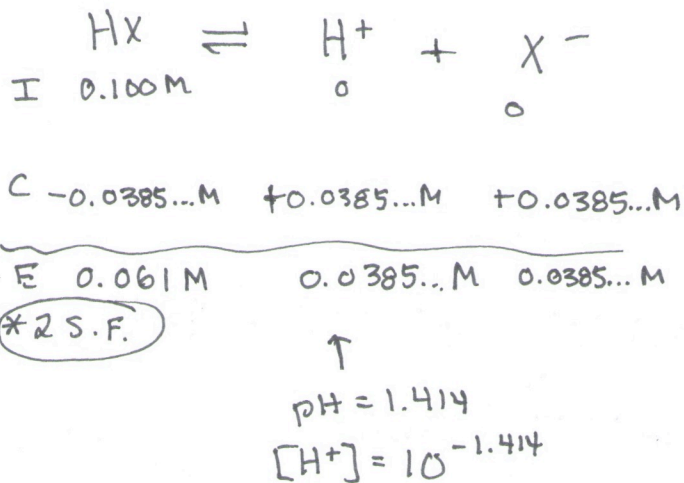 HX ⇌ H⁺ + X⁻
I 0.100M 0 0
C -0.0385...M +0.0385...M +0.0385...M
E 0.061M 0.0385...M 0.0385...M
*2 S.F.
↑
pH = 1.414
[H⁺] = 10⁻¹·⁴¹⁴